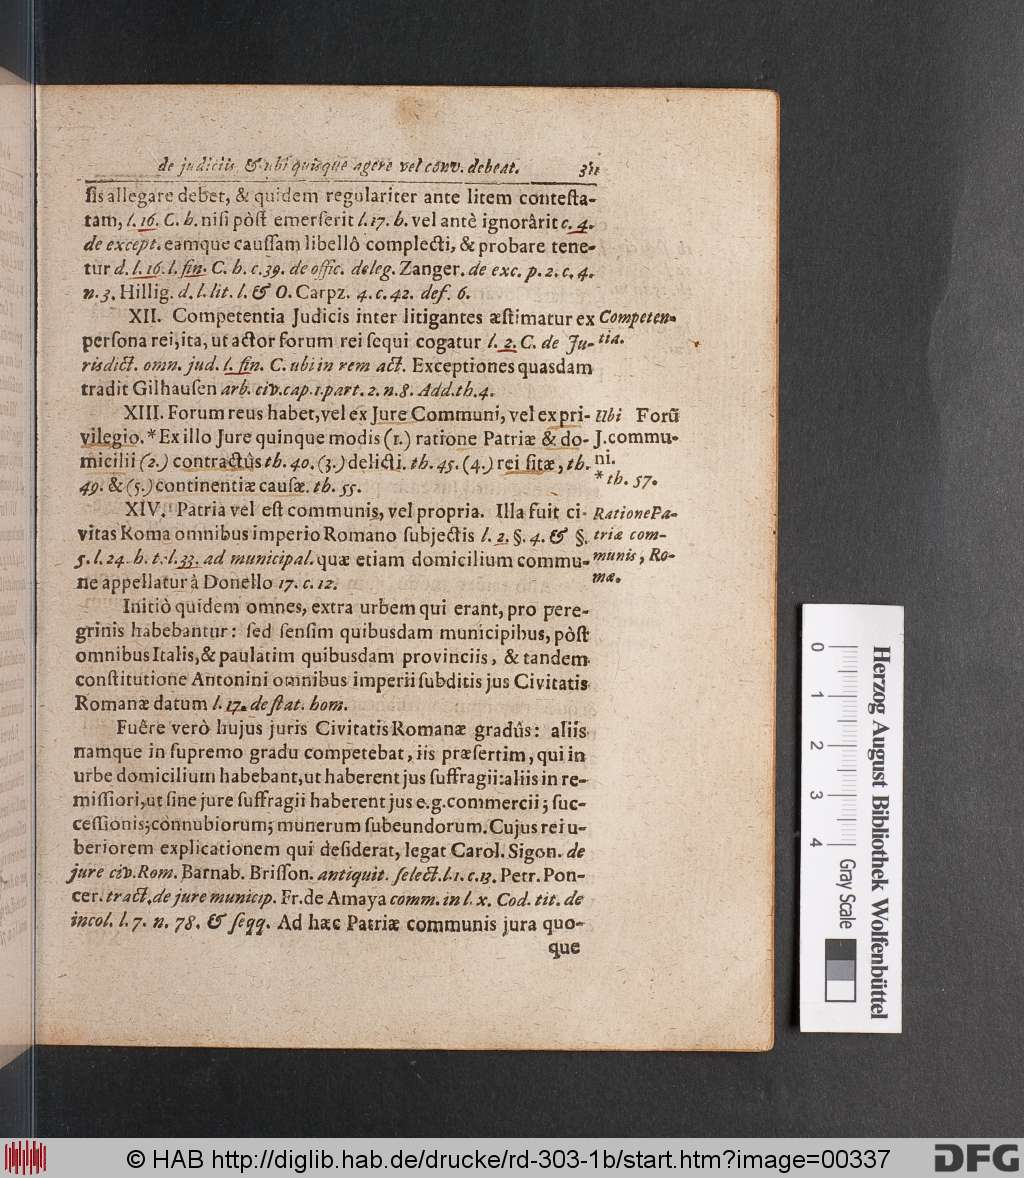 de judiciis, & ubi quisque agere vel conv. debeat. 311
ſis allegare debet, & quidem regulariter ante litem conteſta-
tam, l. 16. C. h. niſi pòſt emerſerit l. 17. h. vel antè ignorârit c. 4.
de except. eamque cauſſam libellô complecti, & probare tene-
tur d. l. 16. l. fin. C. h. c. 39. de offic. deleg. Zanger. de exc. p. 2. c. 4.
n. 3. Hillig. d. l. lit. l. & O. Carpz. 4. c. 42. def. 6.
XII. Competentia Judicis inter litigantes æſtimatur ex
perſona rei, ita, ut actor forum rei ſequi cogatur l. 2. C. de Ju-
risdict. omn. jud. l. fin. C. ubi in rem act. Exceptiones quasdam
tradit Gilhauſen arb. civ. cap. 1. part. 2. n. 8. Add. th. 4.
Competen-
tia.
XIII. Forum reus habet, vel ex Jure Communi, vel ex pri-
vilegio. * Ex illo Jure quinque modis (1.) ratione Patriæ & do-
micilii (2.) contractûs th. 40. (3.) delicti. th. 45. (4.) rei ſitæ, th.
49. & (5.) continentiæ cauſæ. th. 55.
Ubi Forũ
J. commu-
ni.
* th. 57.
XIV. Patria vel eſt communis, vel propria. Illa fuit ci-
vitas Roma omnibus imperio Romano ſubjectis l. 2. §. 4. & §.
5. l. 24. h. t. l. 33. ad municipal. quæ etiam domicilium commu-
ne appellatur à Donello 17. c. 12.
Ratione Pa-
triæ com-
munis, Ro-
mæ.
Initiò quidem omnes, extra urbem qui erant, pro pere-
grinis habebantur: ſed ſenſim quibusdam municipibus, pòſt
omnibus Italis, & paulatim quibusdam provinciis, & tandem
conſtitutione Antonini omnibus imperii ſubditis jus Civitatis
Romanæ datum l. 17. de ſtat. hom.
Fuêre verò hujus juris Civitatis Romanæ gradûs: aliis
namque in ſupremo gradu competebat, iis præſertim, qui in
urbe domicilium habebant, ut haberent jus ſuffragii: aliis in re-
miſſiori, ut ſine jure ſuffragii haberent jus e. g. commercii; ſuc-
ceſſionis; connubiorum; munerum ſubeundorum. Cujus rei u-
beriorem explicationem qui deſiderat, legat Carol. Sigon. de
jure civ. Rom. Barnab. Briſſon. antiquit. ſelect. l. 1. c. 13. Petr. Pon-
cer. tract. de jure municip. Fr. de Amaya comm. in l. x. Cod. tit. de
incol. l. 7. n. 78. & ſeqq. Ad hæc Patriæ communis jura quo-
que
0 1 2 3 4
Gray Scale
Herzog August Bibliothek Wolfenbüttel
© HAB http://diglib.hab.de/drucke/rd-303-1b/start.htm?image=00337
DFG